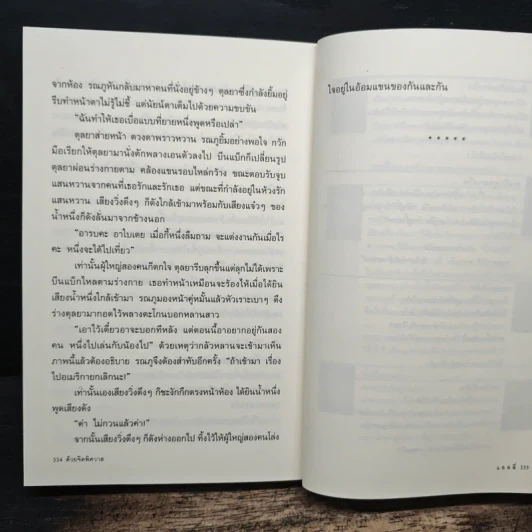 จากห้อง รณภูหันกลับมาหาคนที่นั่งอยู่ข้างๆ ตุลยาซึ่งกำลังยิ้มอยู่
รีบทำหน้าตาไม่รู้ไม่ชี้ แต่นัยน์ตาเต็มไปด้วยความขบขัน
"ฉันทำให้เธอเบื่อแบบที่ยายหนึ่งพูดหรือเปล่า"
ตุลยาส่ายหน้า ดวงตาพราวหวาน รณภูยิ้มอย่างพอใจ กวัก
มือเรียกให้ตุลยามานั่งตักพลางเอนตัวลงไป บีนแบ็กก็เปลี่ยนรูป
ตุลยาผ่อนร่างกายตาม คล้องแขนรอบไหล่กว้าง ขณะตอบรับจูบ
แสนหวานจากคนที่เธอรักและรักเธอ แต่ขณะที่กำลังอยู่ในห้วงรัก
แสนหวาน เสียงวิ่งตึงๆ ก็ดังใกล้เข้ามาพร้อมกับเสียงแจ๋วๆ ของ
น้ำหนึ่งก็ดังลั่นมาจากข้างนอก
"อารบคะ อาใบเตย เมื่อกี้หนึ่งลืมถาม จะแต่งงานกันเมื่อไร
คะ หนึ่งจะได้ไปเที่ยว"
เท่านั้นผู้ใหญ่สองคนก็ตกใจ ตุลยารีบลุกขึ้นแต่ลุกไม่ได้เพราะ
บีนแบ็กไหลตามร่างกาย เธอทำหน้าเหมือนจะร้องไห้เมื่อได้ยิน
เสียงน้ำหนึ่งใกล้เข้ามา รณภูมองหน้าคู่หมั้นแล้วหัวเราะเบาๆ ดึง
ร่างตุลยามากอดไว้พลางตะโกนบอกหลานสาว
"เอาไว้เดี๋ยวอาจะบอกทีหลัง แต่ตอนนี้อาอยากอยู่กันสอง
คน หนึ่งไปเล่นกับน้องไป" ด้วยเหตุว่ากลัวหลานจะเข้ามาเห็น
ภาพนี้แล้วต้องอธิบาย รณภูจึงต้องสำทับอีกครั้ง "ถ้าเข้ามา เรื่อง
ไปอเมริกายกเลิกนะ!"
เท่านั้นเองเสียงวิ่งตึงๆ ก็ชะงักกึกตรงหน้าห้อง ได้ยินน้ำหนึ่ง
พูดเสียงดัง
"ค่า ไม่กวนแล้วค่า!"
จากนั้นเสียงวิ่งตึงๆ ก็ดังห่างออกไป ทิ้งไว้ให้ผู้ใหญ่สองคนโล่ง
334 ด้วยจิตพิศวาส
ใจอยู่ในอ้อมแขนของกันและกัน
* * * * *
335